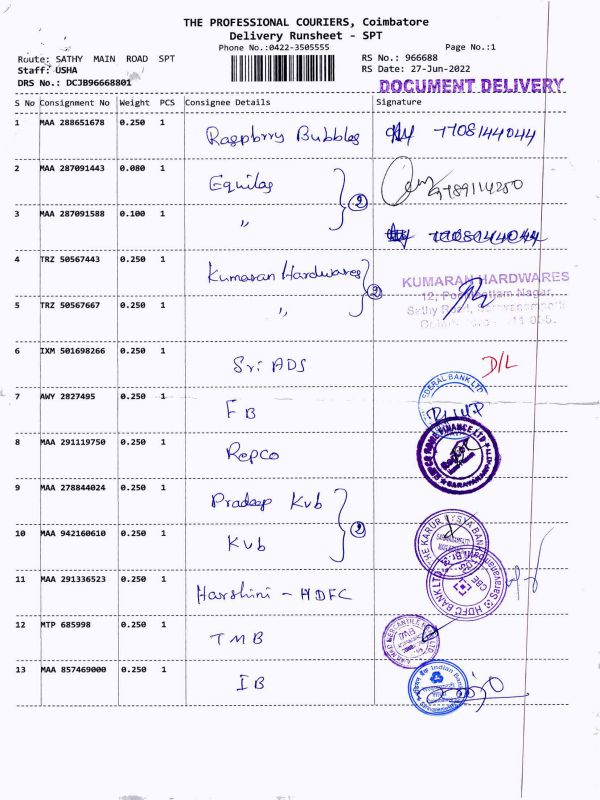 THE PROFESSIONAL COURIERS, Coimbatore
Delivery Runsheet - SPT
Phone No.:0422-3505555 Page No.:1
Route: SATHY MAIN ROAD SPT RS No.: 966688
Staff: USHA RS Date: 27-Jun-2022
DRS No.: DCJB96668801
DOCUMENT DELIVERY
S No Consignment No Weight PCS Consignee Details Signature
1 MAA 288651678 0.250 1 Raspbrry Bubbles 7708144044
2 MAA 287091443 0.080 1 Equitas 2
3 MAA 287091588 0.100 1 "
4 TRZ 50567443 0.250 1 Kumaran Hardwares 2
KUMARAN HARDWARES
5 TRZ 50567667 0.250 1 "
6 IXM 501698266 0.250 1 Sri ADS D/L
7 AWY 2827495 0.250 1 FB
FEDERAL BANK LTD
8 MAA 291119750 0.250 1 Repco
REPCO HOME FINANCE LTD
9 MAA 278844024 0.250 1 Pradeep Kvb 2
10 MAA 942160610 0.250 1 Kvb
THE KARUR VYSYA BANK
11 MAA 291336523 0.250 1 Harshini - HDFC
HDFC BANK LTD
12 MTP 685998 0.250 1 TMB
13 MAA 857469000 0.250 1 IB
Indian Bank